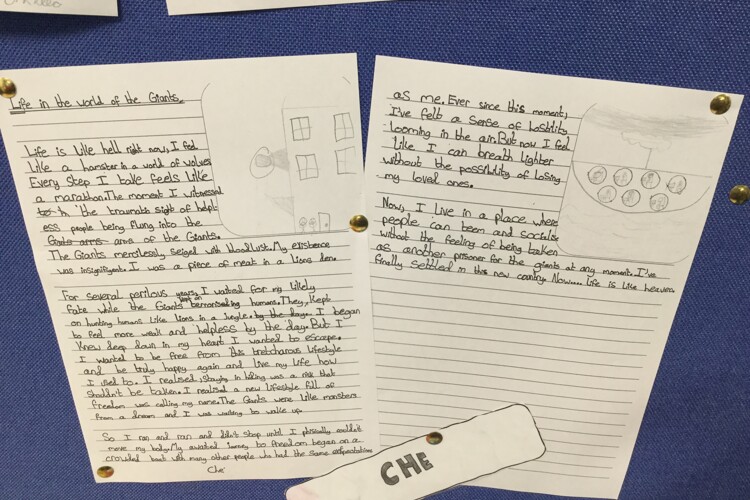 Life in the world of the Giants.
Life is like hell right now, I feel
like a hamster in a world of wolves
Every step I take feels like
a marathon. The moment I witnessed
the traumatic sight of helpl-
ess people being flung into the
arms of the Giants.
The Giants mercilessly seiged with bloodlust. My existence
was insignifigent. I was a piece of meat in a Lions den.
For several perilous years, I waited for my likely
fate while the Giants kept on terrorising humans. They, kept
on hunting humans like lions in a jungle. I began
to feel more weak and helpless by the day. But I
knew deep down in my heart I wanted to escape.
I wanted to be free from this tretcharous lifestyle
and be truly happy again and live my life how
I used to. I realised, staying in hiding was a risk that
shouldn't be taken. I realised a new lifestyle full of
freedom was calling my name. The Giants were like monsters
from a dream and I was waiting to wake up.
So I ran and ran and didn't stop until I phisically couldn't
move my body. My awaited journey to freedom began on a
crowded boat with many other people who had the same expectations
Che
as me. Ever since this moment,
I've felt a sense of hostility
looming in the air. But now I feel
like I can breath lighter
without the possibility of losing
my loved ones.
Now, I live in a place where
people can been and socialise
without the feeling of being taken
as another prisoner for the giants at any moment. I've
finally settled in this new country. Now... life is like heaven.
CHE